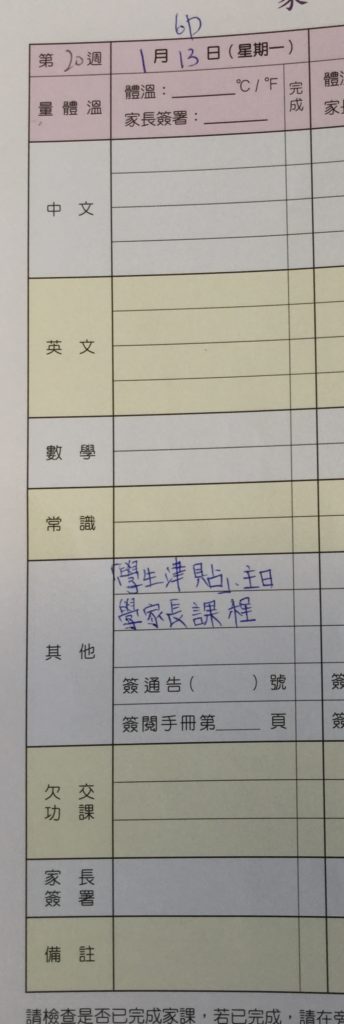 6D
第20週 1月13日(星期一)
量體溫 體溫：______°C / °F 完成
家長簽署：______
中文
英文
數學
常識
其他 「學生津貼」、主日
學家長課程
簽通告( )號
簽閱手冊第____頁
欠交功課
家長簽署
備註
請檢查是否已完成家課，若已完成，請在旁